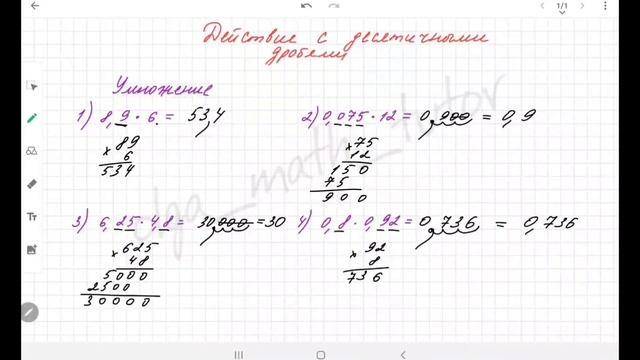 Действие с десятичными
дробями
Умножение
1) 8,9 · 6 = 53,4
× 89
6
534
2) 0,075 · 12 = 0,900 = 0,9
× 75
12
150
75
900
3) 6,25 · 4,8 = 30000 = 30
× 625
48
5000
2500
30000
4) 0,8 · 0,92 = 0,736 = 0,736
× 92
8
736
1/1